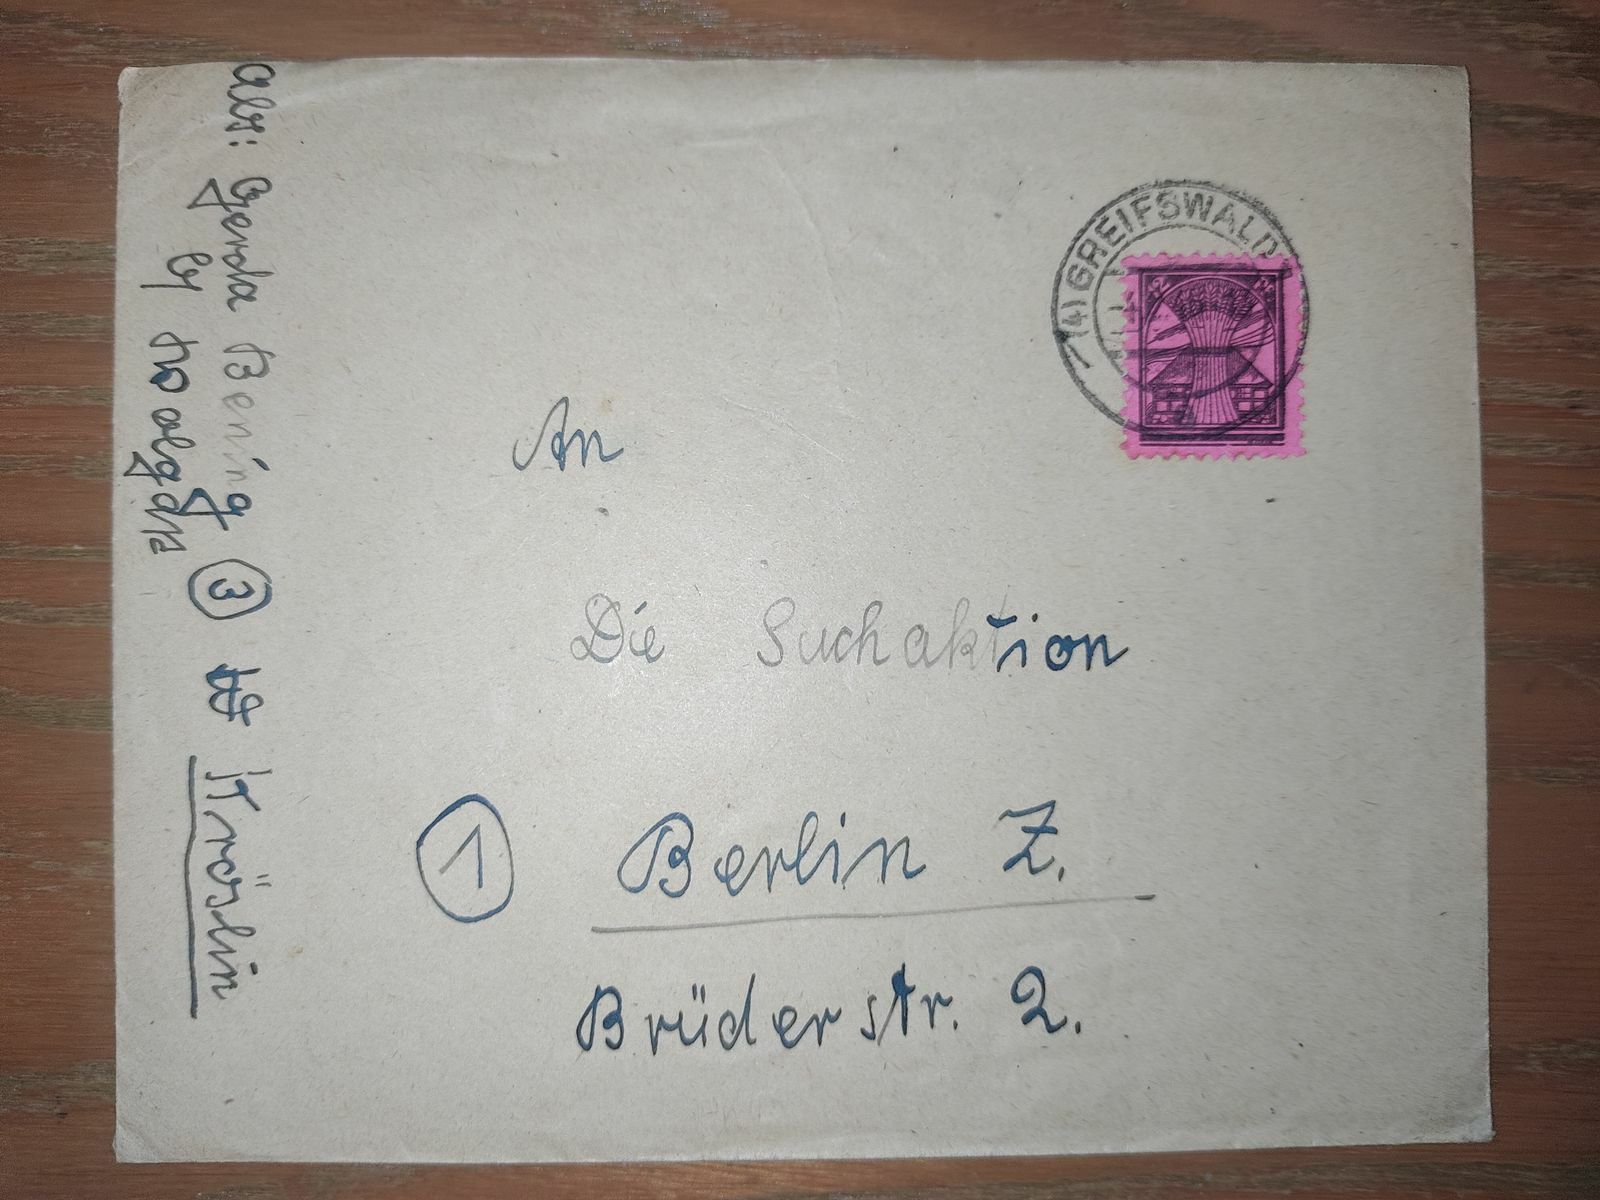 (4) GREIFSWALD
12
An
Die Suchaktion
1 Berlin Z.
Brüderstr. 2.
Abs: Gerda Bening 3 Kröslin
by Wolgast